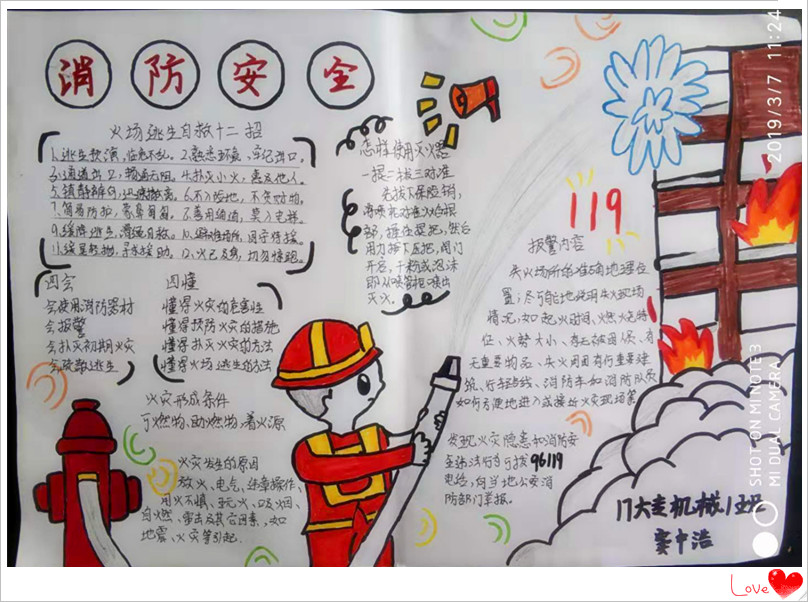 消防安全
火场逃生自救十二招
1.逃生预演,临危不乱。2.熟悉环境,牢记出口。
3.通道出口,畅通无阻。4.扑灭小火,惠及他人。
5.镇静辨向,迅速撤离。6.不入险地,不贪财物。
7.简易防护,蒙鼻匍匐。8.善用通道,莫入电梯。
9.缓降逃生,滑绳自救。10.避难场所,固守待援。
11.缓晃轻抛,寻求援助。12.火已及身,切勿惊跑。
四会
会使用消防器材
会报警
会扑灭初期火灾
会疏散逃生
四懂
懂得火灾的危害性
懂得预防火灾的措施
懂得扑灭火灾的方法
懂得火场逃生的方法
火灾形成条件
可燃物、助燃物、着火源
火灾发生的原因
放火、电气、违章操作、
用火不慎、玩火、吸烟、
自燃、雷击及其它因素,如
地震、火灾等引起.
怎样使用灭火器
一提二拔三对准
先拔下保险销,
部,握住提把,然后
用力按下压把,阀门
开启,干粉或泡沫
即从喷管相喷出
灭火。
119
报警内容
失火场所的准确地理位
置;尽可能地说明失火现场
情况,如起火时间、燃烧特
征、火势大小、有无被困人员、有
无重要物品、失火周围有何重要建
筑、行车路线、消防车和消防队员
如何方便地进入或接近火灾现场等
发现火灾隐患和消防安
全违法行为可拨96119
电话,向当地公安消
防部门举报。
17大专机械1班
窦中浩
2019/3/7 11:24
SHOT ON MI NOTE 3
MI DUAL CAMERA
Love